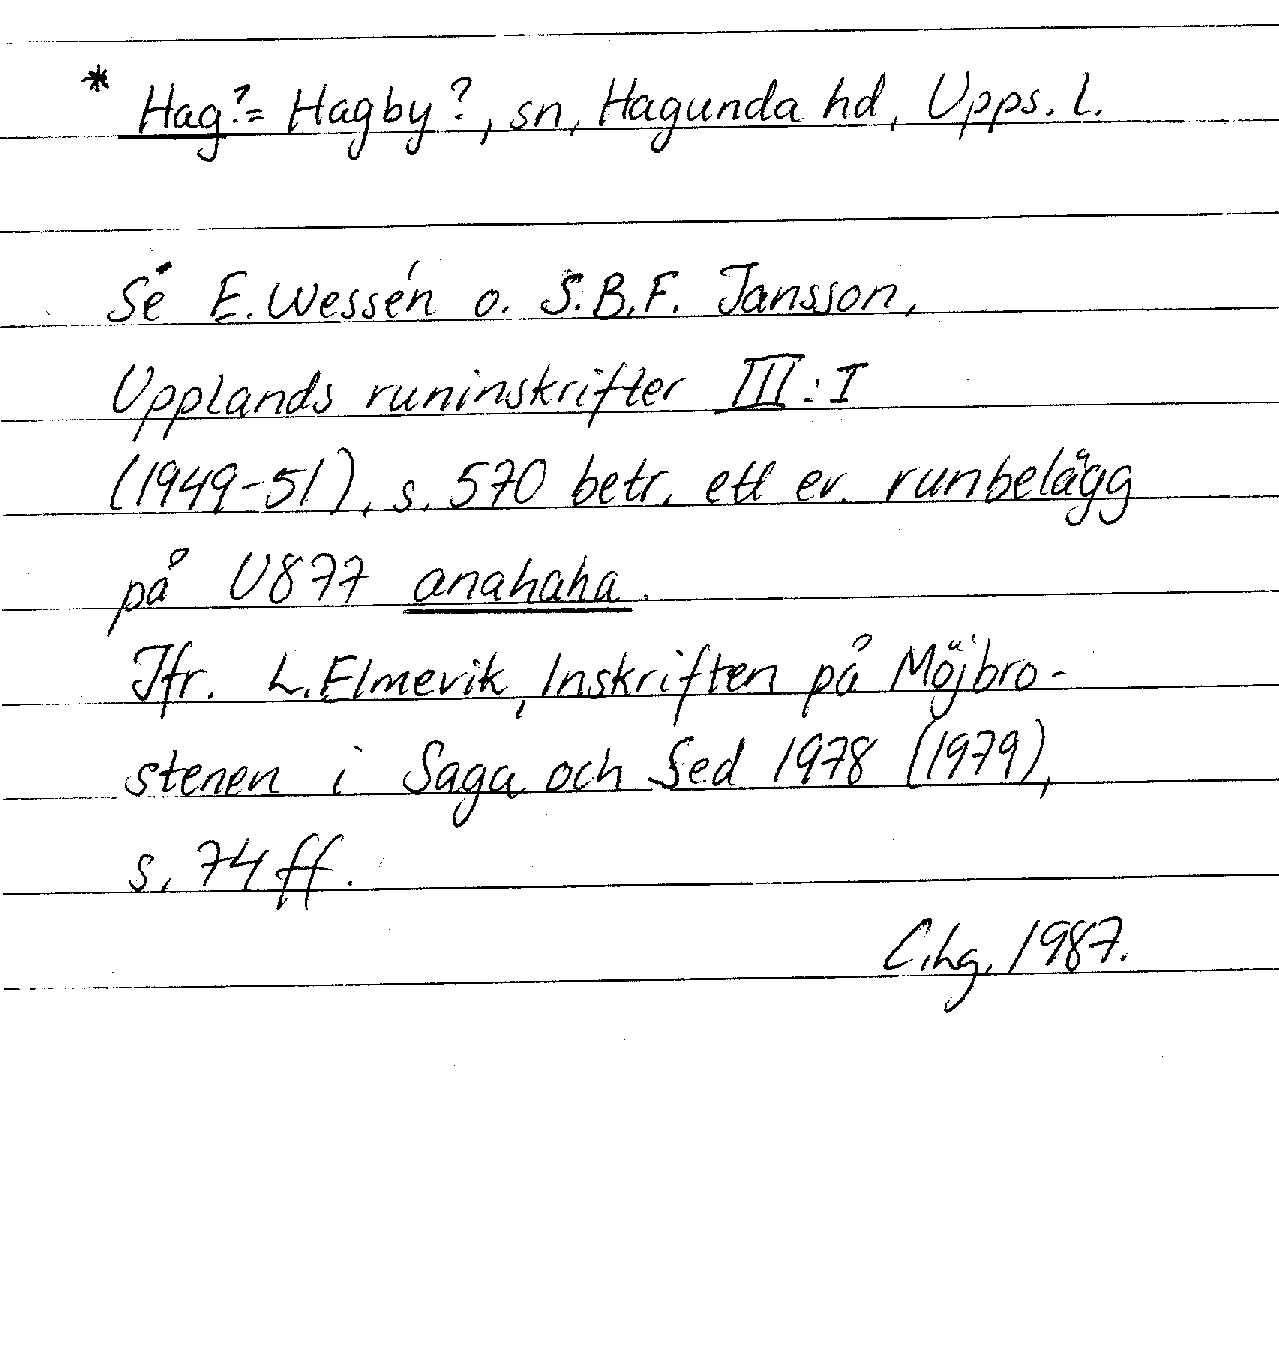 * Hag?= Hagby?, sn, Hagunda hd, Upps. l.
Se E. Wessén o. S.B.F. Jansson,
Upplands runinskrifter III:I
(1949-51), s. 570 betr. ett ev. runbelägg
på U877 anahaha.
Jfr. L. Elmevik, Inskriften på Möjbro-
stenen i Saga och Sed 1978 (1979),
s. 74 ff.
C.hg. 1987.